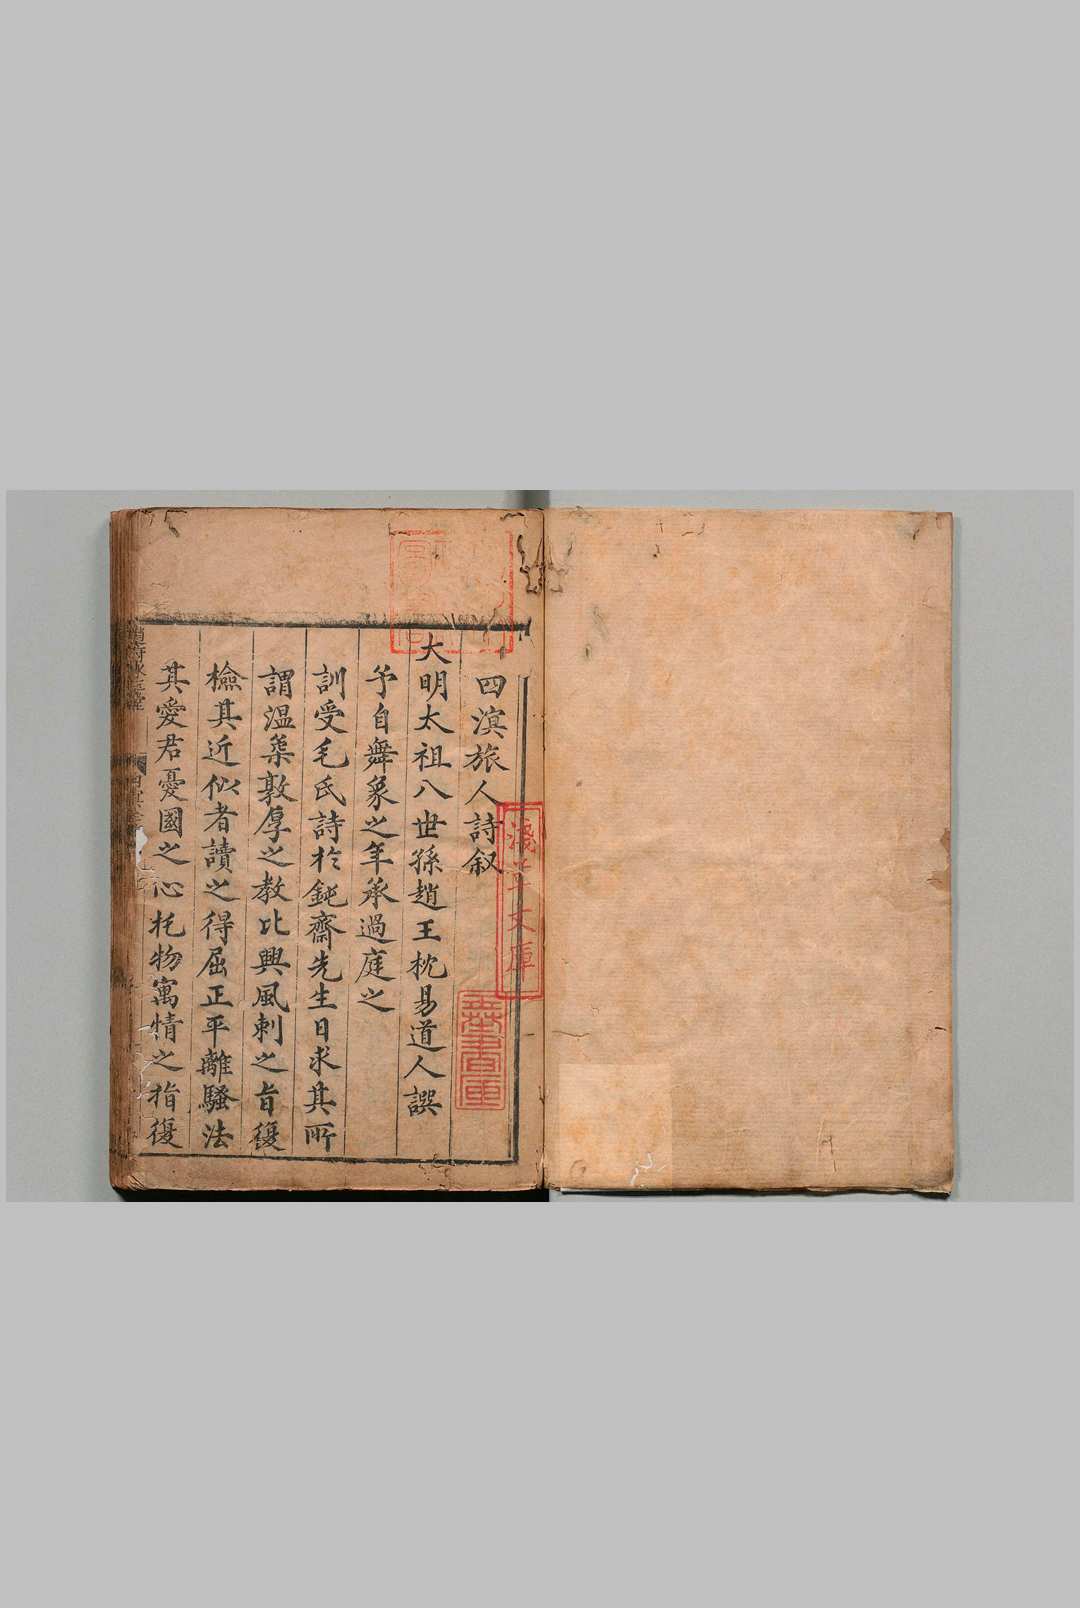 四溟旅人詩叙
大明太祖八世孫趙王枕易道人譔
予自舞象之年承過庭之
訓受毛氏詩於鈍齋先生日求其所
謂溫柔敦厚之教比興風刺之旨復
檢其近似者讀之得屈正平離騷法
其愛君憂國之心托物寓情之指復
淺草文庫